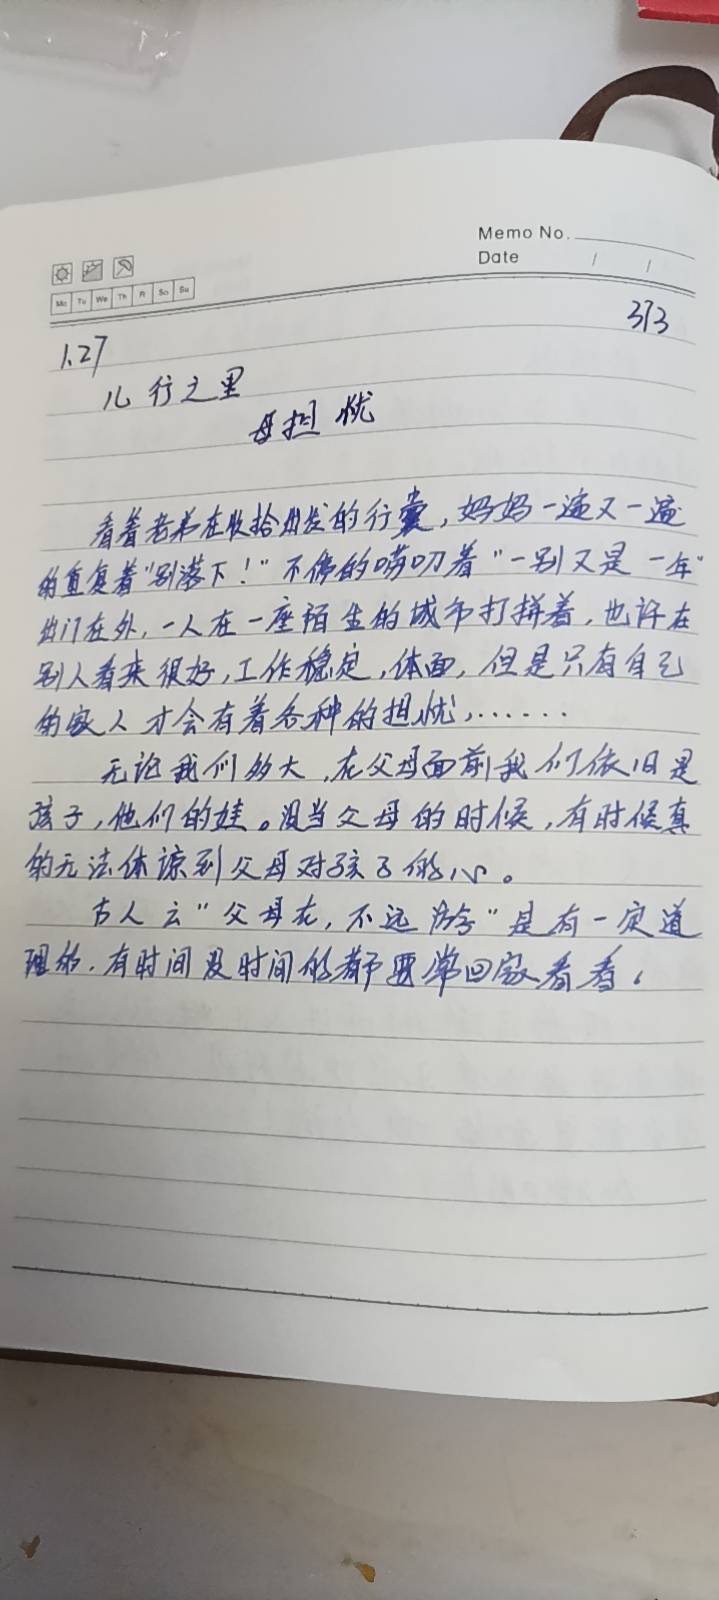 Memo No.
Date / /
Mo Tu We Th Fr Sa Su
1.27
313
儿行之里
母担忧
看着老弟在收拾出发的行囊，妈妈一遍又一遍
的重复着“别落下！”不停的唠叨着“一别又是一年”
出门在外，一人在一座陌生的城市打拼着，也许在
别人看来很好，工作稳定，体面，但是只有自己
的家人才会有着各种的担忧，……
无论我们多大，在父母面前我们依旧是
孩子，他们的娃。没当父母的时候，有时候真
的无法体谅到父母对孩子的心。
古人云“父母在，不远游”是有一定道
理的，有时间没时间的都要常回家看看。